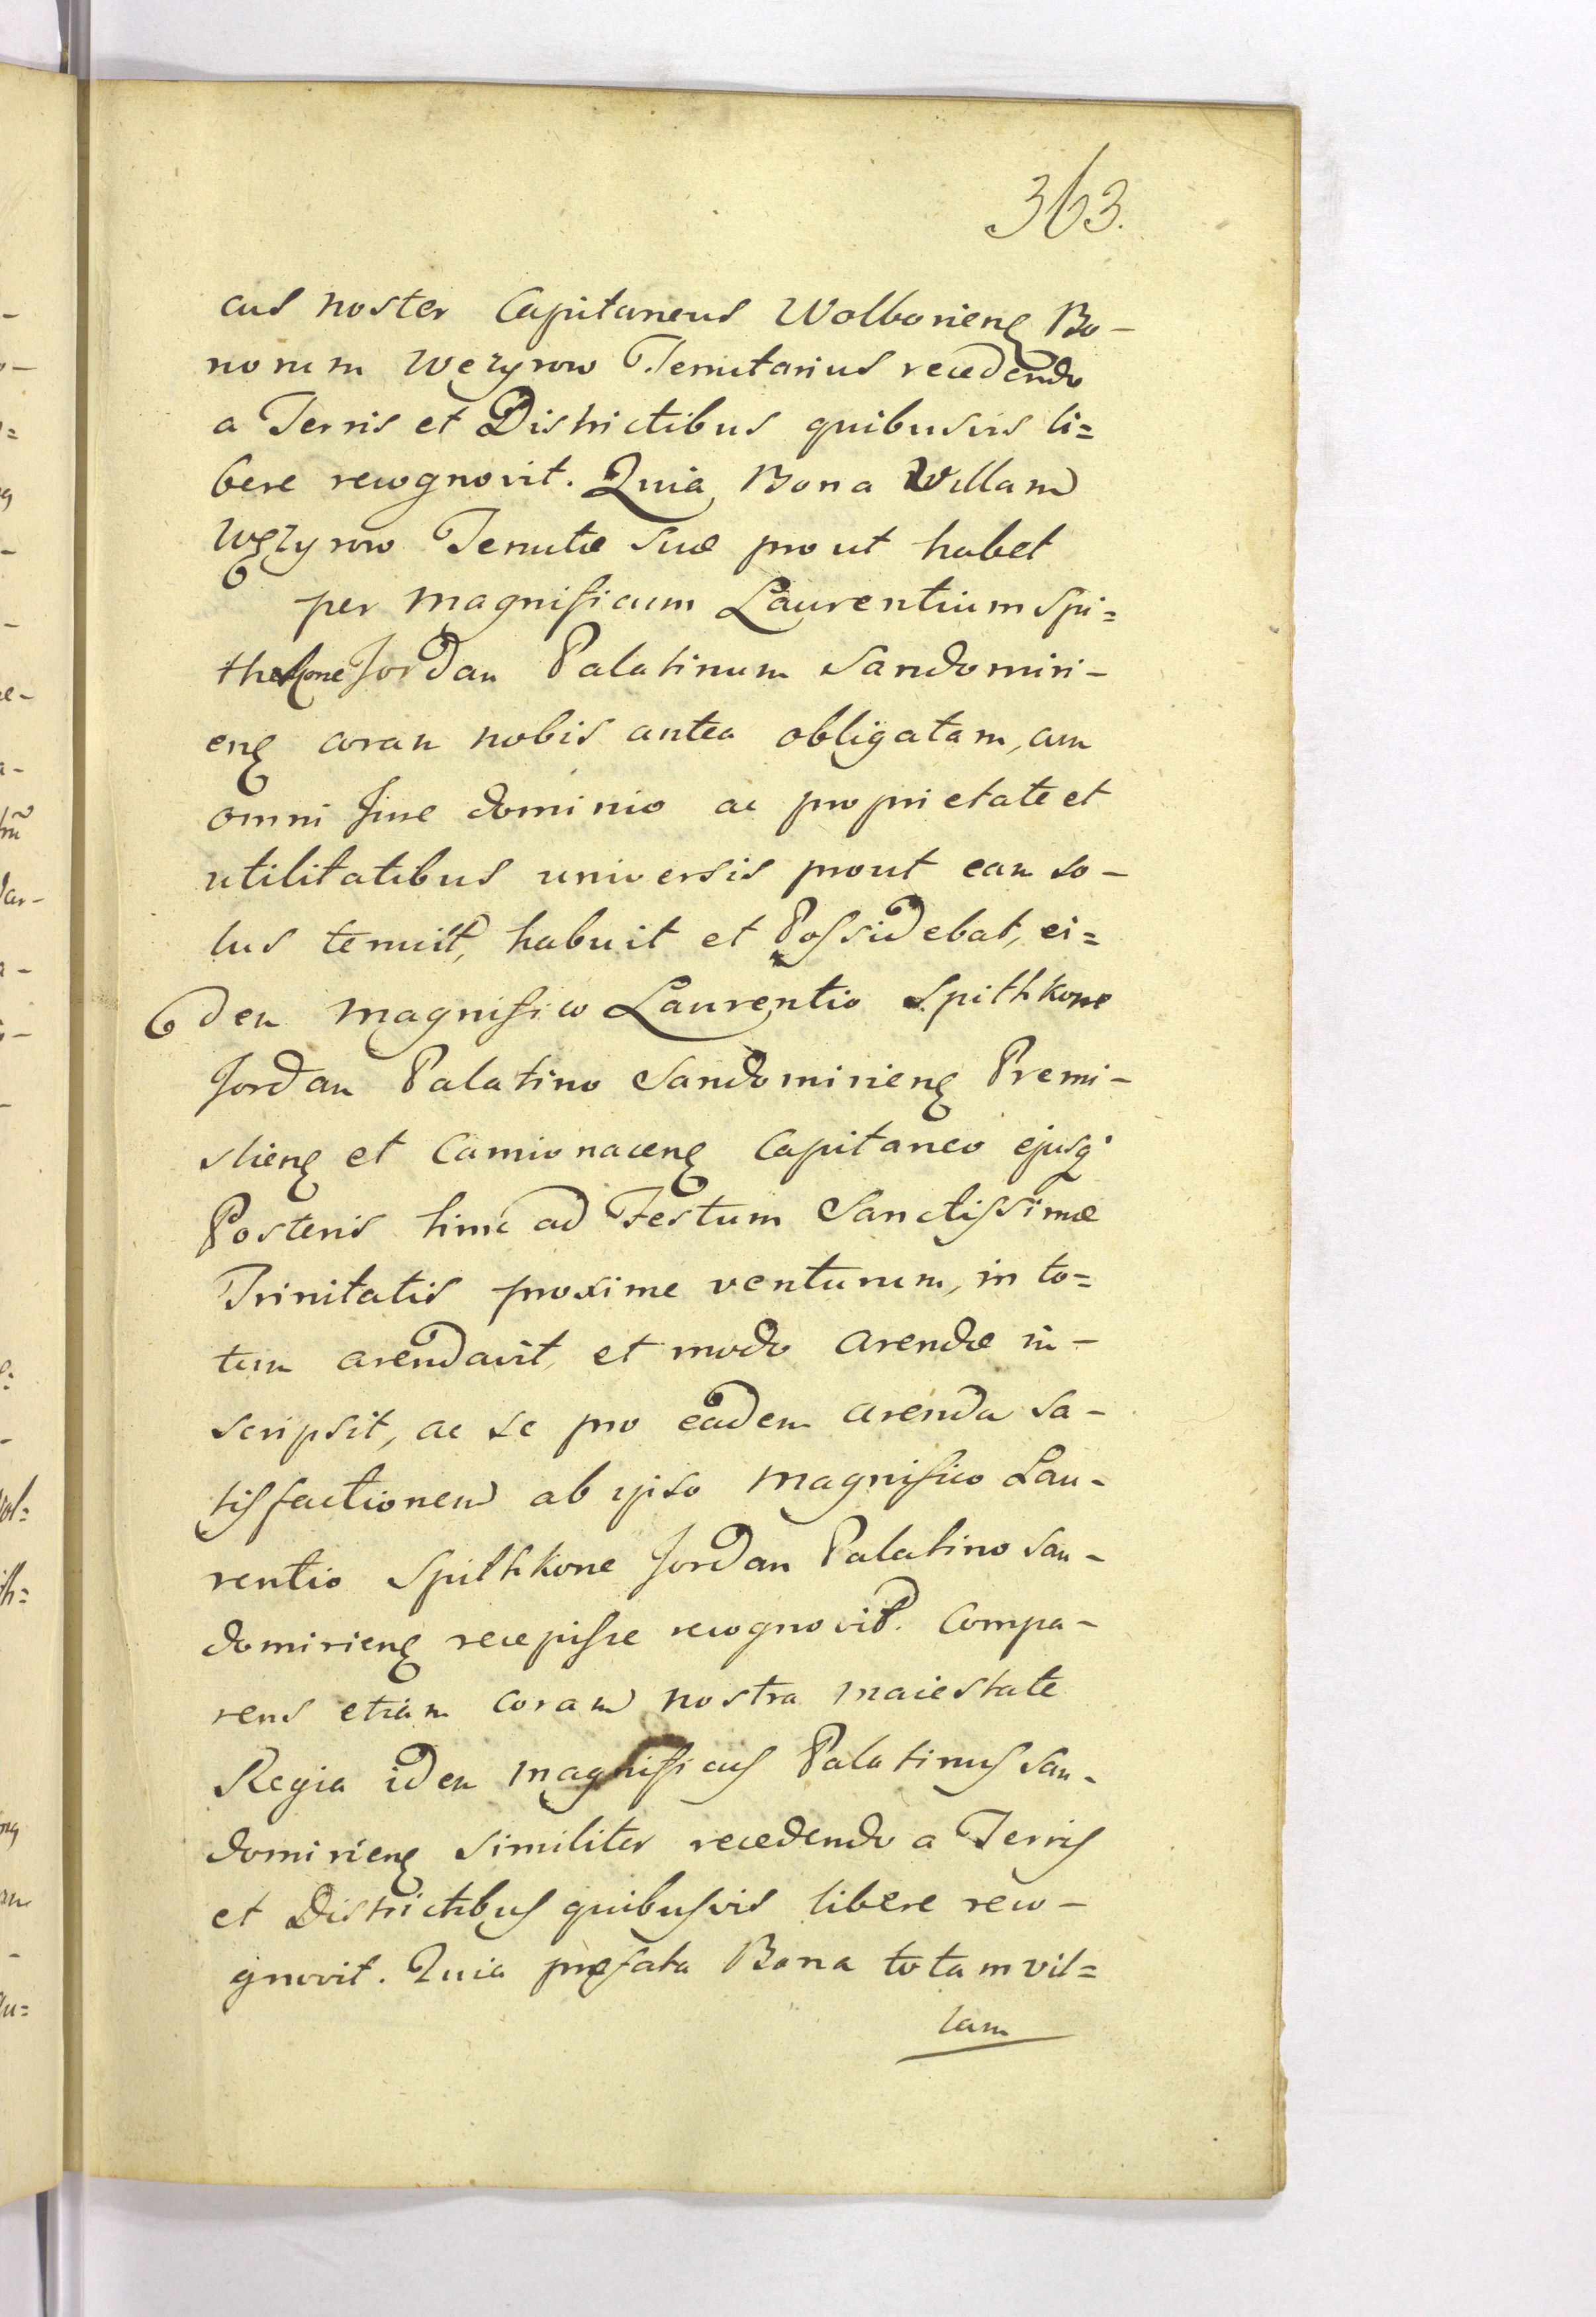 363.
cus noster Capitaneus Wolborieng Bo-
norum Wezyrow Tenutarius recedendo
a Terris et Districtibus quibusvis li=
bere recognovit. Quia Bona Villam
Węzyrow Tenutæ suæ prout habet
per magnificum Laurentium Spi=
thkone Jordan Palatinum Sandomiri-
eng coram nobis antea obligatam, cum
omni Jure dominio ac proprietate et
utilitatibus universis prout eam so-
lus tenuit, habuit et Possidebat, ei=
dem magnifico Laurentio Spithkone
Jordan Palatino Sandomirieng Premi-
slieng et Camionaceng Capitaneo ejusq
Posteris hinc ad Festum Sanctissimæ
Trinitatis proxime venturum, in to=
tum arendavit, et modo arendæ in-
scripsit, ac se pro eadem arenda sa-
tisfactionem ab ipso magnifico Lau-
rentio Spithkone Jordan Palatino San-
domirieng recepisse recognovit. Compa-
rens etiam coram nostra maiestate
Regia idem magnificus Palatinus San-
domirieng similiter recedendo a Terris
et Districtibus quibusvis libere reco-
gnovit. Quia præfata Bona totam vil=
lam